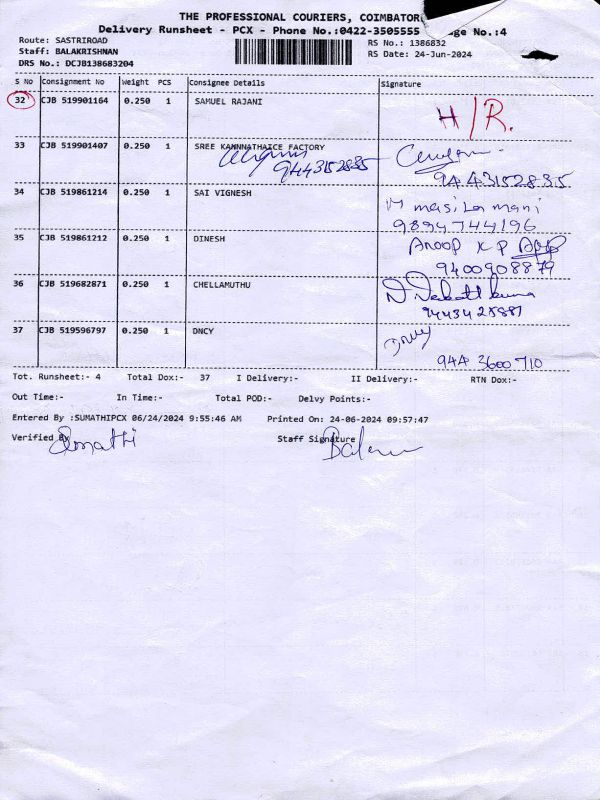 THE PROFESSIONAL COURIERS, COIMBATOR
Delivery Runsheet - PCX - Phone No.:0422-3505555 ge No.:4
Route: SASTRIROAD
RS No.: 1386832
Staff: BALAKRISHNAN
RS Date: 24-Jun-2024
DRS No.: DCJB138683204
S No Consignment No Weight PCS Consignee Details Signature
32 CJB 519901164 0.250 1 SAMUEL RAJANI
H/R.
33 CJB 519901407 0.250 1 SREE KANNNATHAICE FACTORY
9443152835 9443152835
34 CJB 519861214 0.250 1 SAI VIGNESH
M masilamani
9894744196
35 CJB 519861212 0.250 1 DINESH
Anoop K P
9400908879
36 CJB 519682871 0.250 1 CHELLAMUTHU
37 CJB 519596797 0.250 1 DNCY
DNCY
944 3600 710
Tot. Runsheet:- 4 Total Dox:- 37 I Delivery:- II Delivery:- RTN Dox:-
Out Time:- In Time:- Total POD:- Delvy Points:-
Entered By :SUMATHIPCX 06/24/2024 9:55:46 AM Printed On: 24-06-2024 09:57:47
Verified By Staff Signature